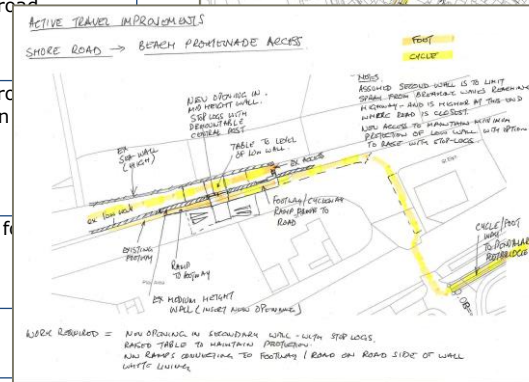 road
ACTIVE TRAVEL IMPROVEMENTS
SHORE ROAD → BEACH PROMENADE ACCESS.
FOOT
CYCLE
NOTES
ASSUMED SECOND WALL IS TO LIMIT
SPRAY FROM BREAKING WAVES REACHING
HIGHWAY - AND IS HIGHER AT THIS END
WHERE ROAD IS CLOSEST.
NEW ACCESS TO MAINTAIN MINIMUM
PROTECTION OF LOW WALL WITH OPTION
TO RAISE WITH STOP-LOGS.
NEW OPENING IN
MID HEIGHT WALL.
STOP LOGS WITH
DEMOUNTABLE
CENTRAL POST
TABLE TO LEVEL
OF LOW WALL.
EX
SEA WALL
(HIGH)
EX ACCESS
EX LOW WALL
FOOTWAY/CYCLEWAY
RAMP DOWN TO
ROAD
EXISTING
FOOTWAY
RAMP
TO FOOTWAY
EX MEDIUM HEIGHT
WALL (INSERT NEW OPENING)
CYCLE/FOOT
FOOTBRIDGE
WORK REQUIRED = NEW OPENING IN SECONDARY WALL - WITH STOP LOGS.
RAISED TABLE TO MAINTAIN PROTECTION.
NEW RAMPS CONNECTING TO FOOTWAY / ROAD ON ROAD SIDE OF WALL
WHITE LINING